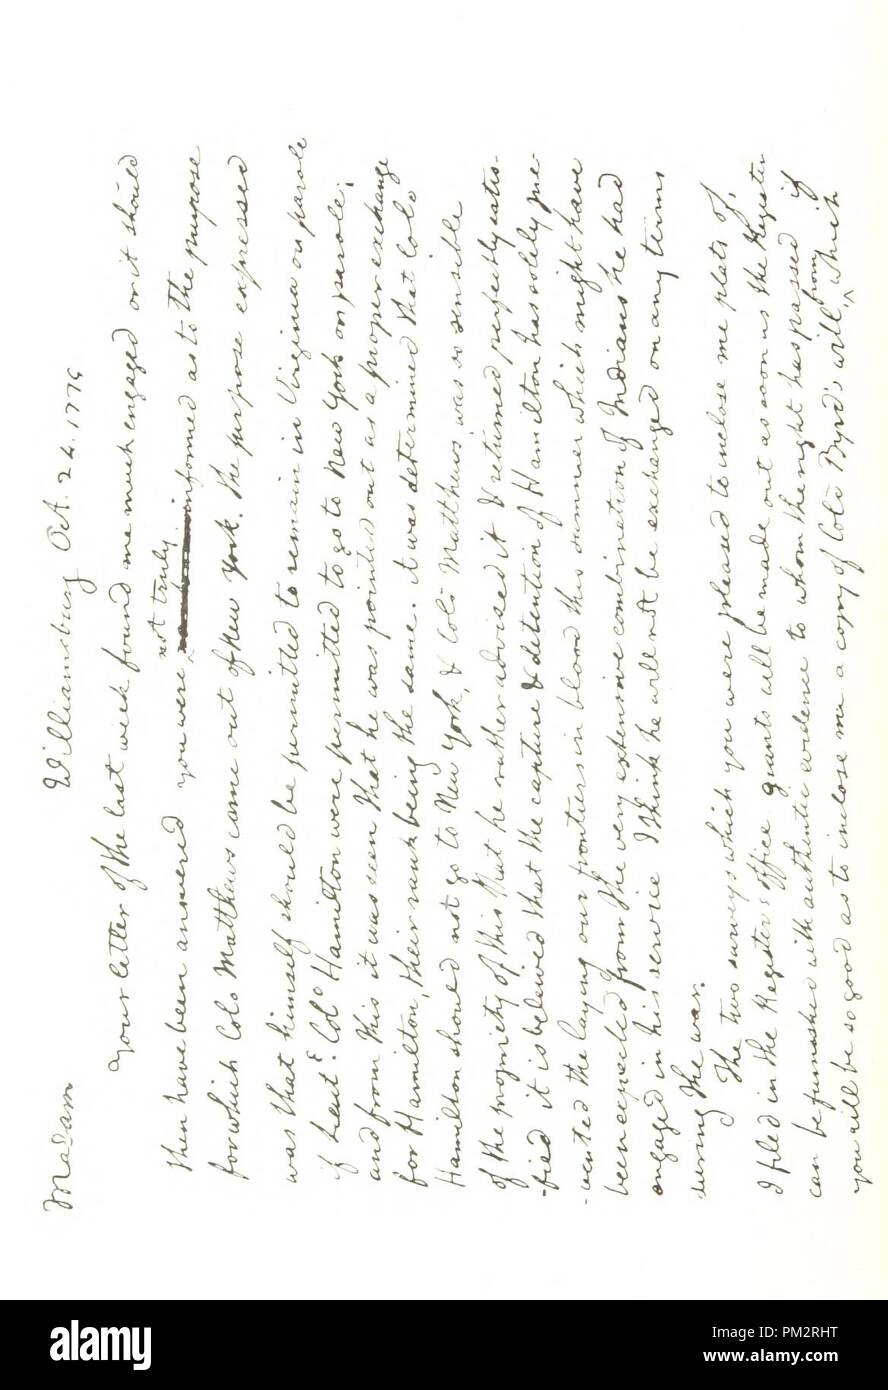 Madam Williamsburg Oct. 24. 1779
Your letter of the last week found me much engaged or it should
then have been answered you were not truly informed as to the purpose
for which Colo Matthews came out of New York. the purpose expressed
was that himself should be permitted to remain in Virginia on parole
if Lieut. Colo Hamilton were permitted to go to New York on parole;
and from this it was seen that he was pointed out as a proper exchange
for Hamilton, their rank being the same. it was determined that Colo
Hamilton should not go to New York, & Colo Matthews was so sensible
of the propriety of this that he rather advised it & returned perfectly satis-
-fied it is believed that the capture & detention of Hamilton has solely pre-
-vented the laying our frontiers in blood this summer which might have
been expected from the very extensive combination of Indians he had
engaged in his service I think he will not be exchanged on any terms
during the war.
The two surveys which you were pleased to inclose me plats of,
I filed in the Register's office grants will be made out as soon as the Register
can be furnished with authentic evidence to whom the right has passed if
you will be so good as to inclose me a copy of Colo Byrd's will, from which
alamy
Image ID: PM2RHT
www.alamy.com